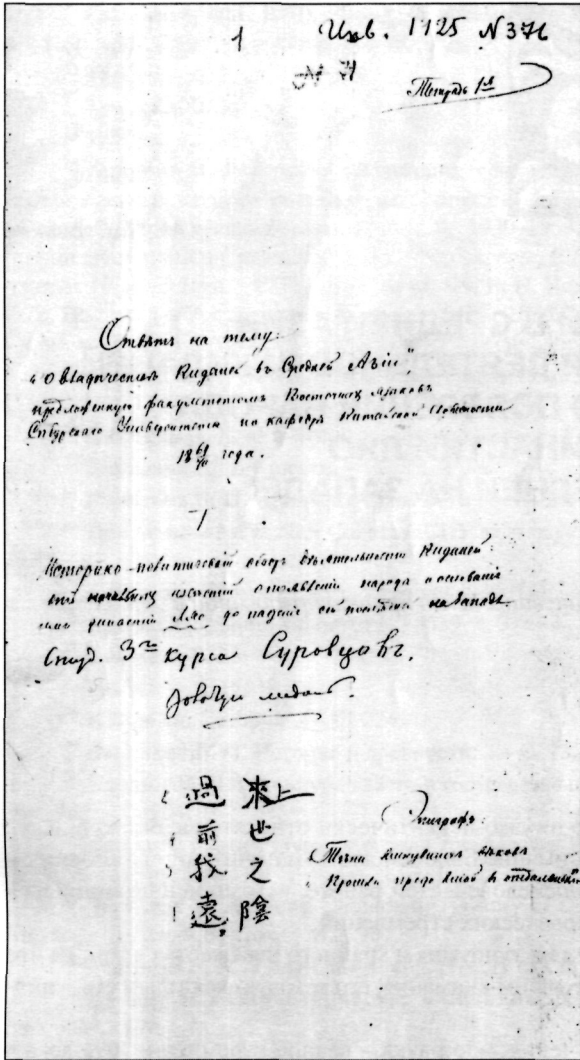 1 Инв. 1125 N 376
Тетрадь 1я
Отвѣтъ на тему:
„О владычествѣ Киданей въ Средней Азіи",
предложенную факультетомъ Восточныхъ языковъ
Спбургскаго Университета по кафедрѣ Китайской словесности
18 69/70 года.
I
Историко-политическій обзоръ дѣятельности Киданей
отъ начальныхъ извѣстій о появленіи народа и основаніи
имъ династіи Ляо до паденія сей на Западѣ.
Студ. 3го курса Суровцовъ.
медаль.
上來世之陰
過前我遠
Эпиграфъ:
Тѣни минувшихъ вѣковъ
Прошли предо мной въ